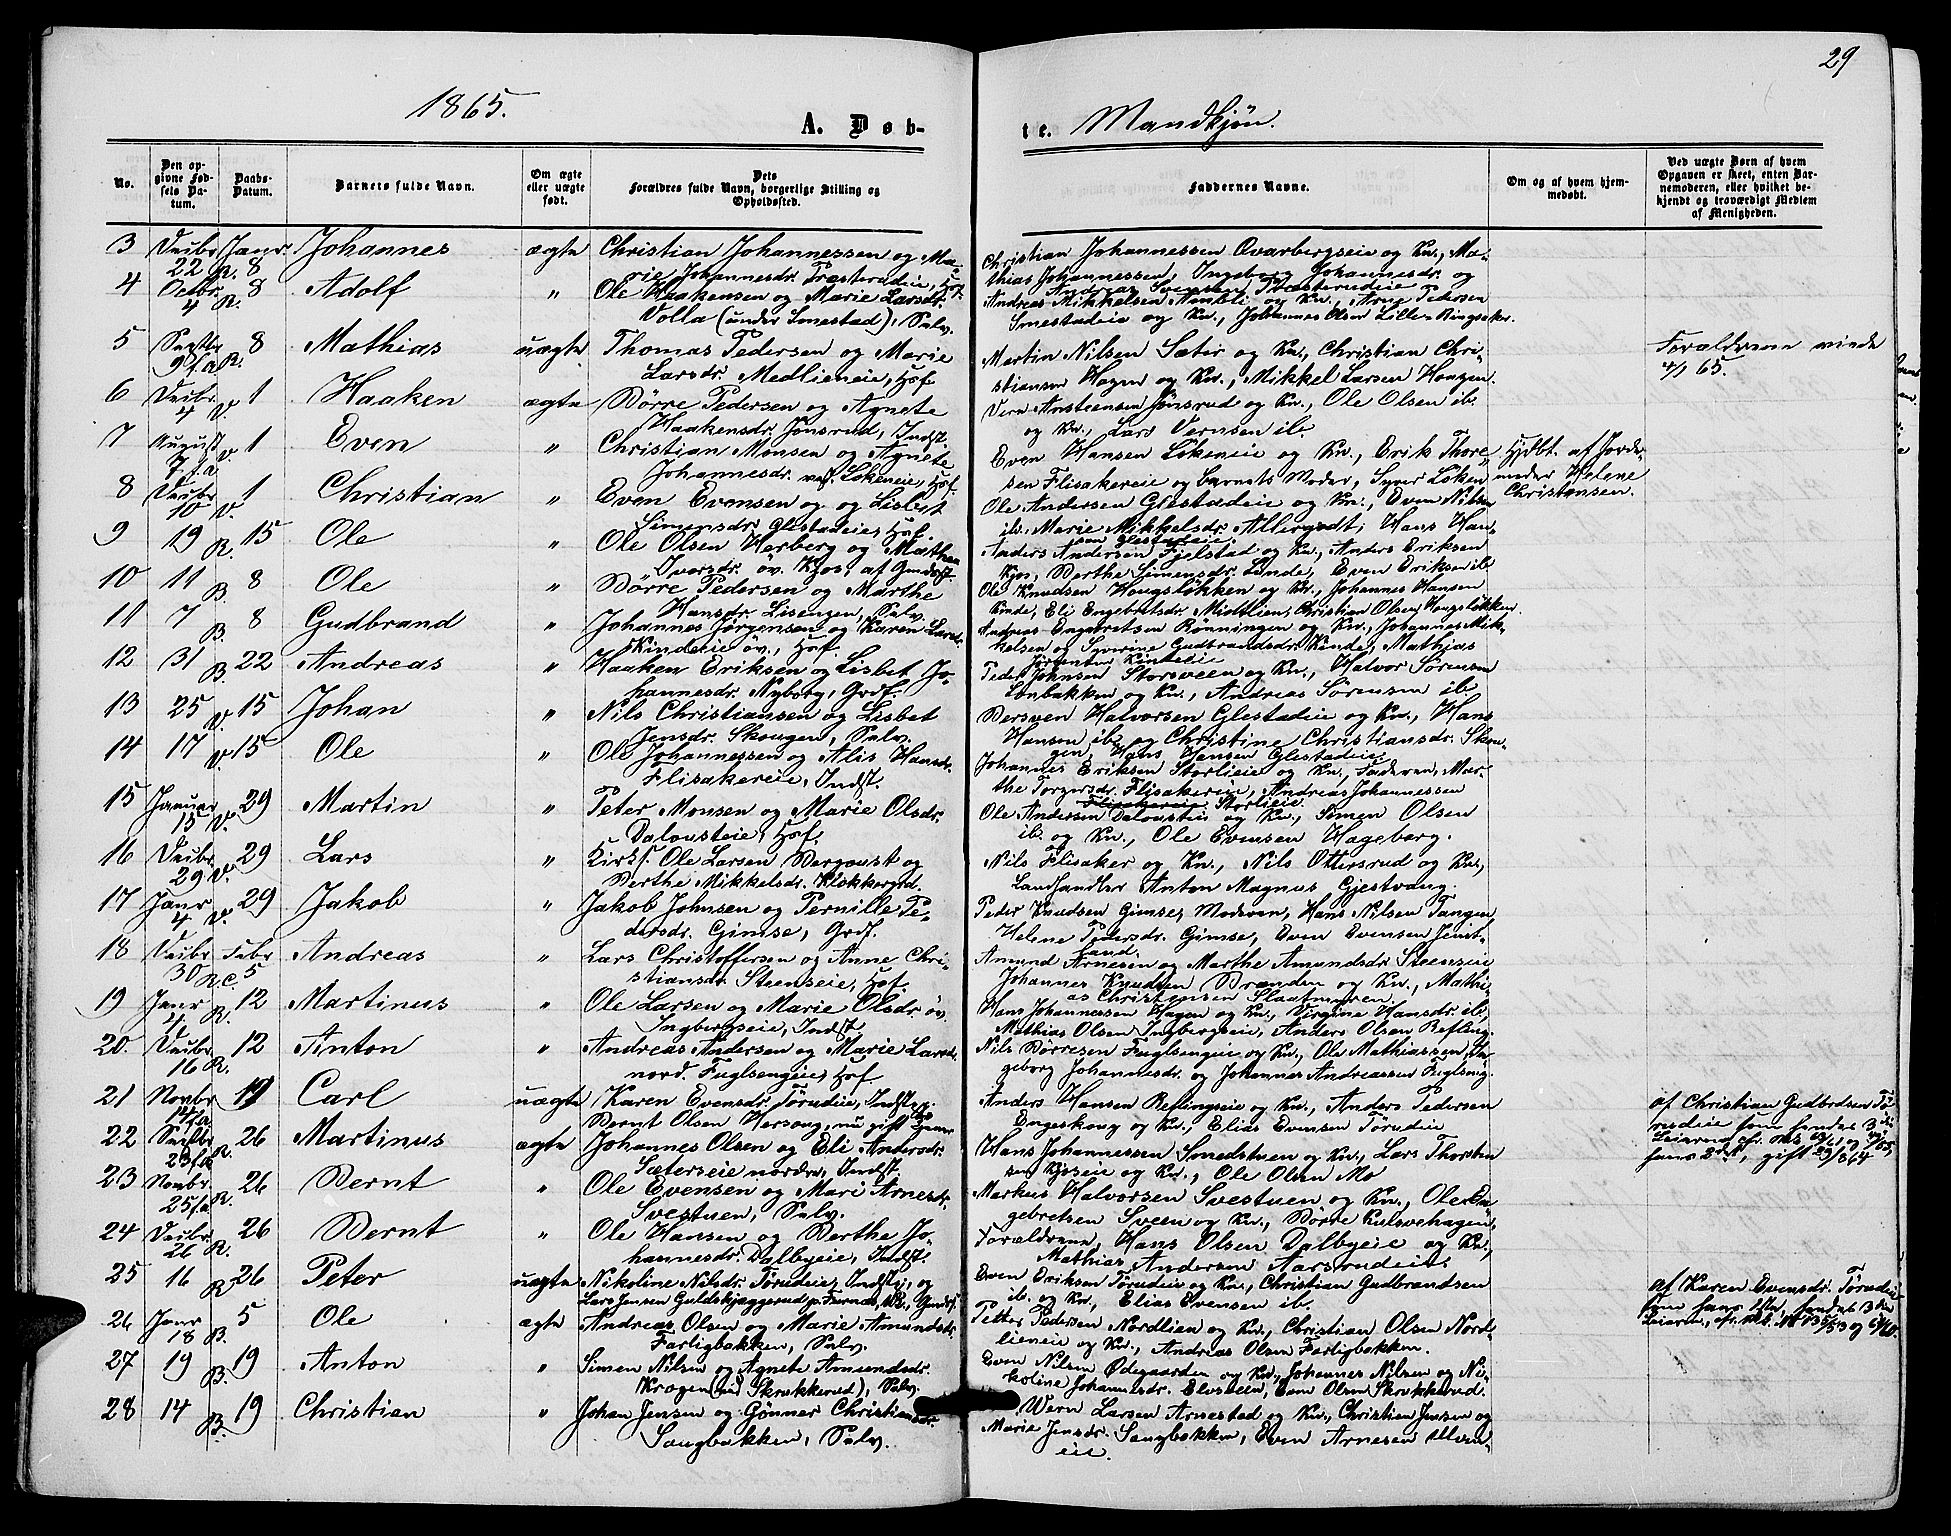 29
1865.
A. Døb-
te. Mandkjøn.
No.
Den op-
givne Fød-
sels Da-
tum.
Daabs-
Datum.
Barnets fulde Navn.
Om ægte
eller uægte
født.
Dets
Forældres fulde Navn, borgerlige Stilling og
Opholdssted.
Faddernes Navne.
Om og af hvem hjem-
medøbt.
Ved uægte Børn af hvem
Opgaven er skeet, enten Bar-
nemoderen, eller hvilket be-
kjendt og troværdigt Medlem
af Menigheden.
3 Decbr 22 R. Janr. 8 Johannes ægte Christian Johannessen og Ma-
rie Johannesdr. Træsterudeie, Hof.
Christian Johannessen Ovarbergseie og Kn., Ma-
thias Johannessen, Ingeborg Johannesdr. og
Andreas Svensen Træsterudeie
4 Octbr 4 R. 8 Adolf " Ole Haakensen og Marie Larsdr.
Volla (under Smestad), Sælv.
Andreas Mikkelsen Nimbli og Kn., Arne Pedersen
Smestadeie og Kn., Johannes Olsen Lille-Ringsaker.
5 Septbr 9 f.a. R. 8 Mathias uægte Thomas Pedersen og Marie
Larsdr. Medlieneie, Hof.
Martin Nilsen Sætir og Kn., Christian Chri-
stiansen Hagen og Kn., Mikkel Larsen Haugen.
Forældrene viede
4/1 65.
6 Decbr 4 V. 1 Haaken ægte Børre Pedersen og Agnete
Haakensdr. Jønsrud, Indst.
Vern Ansteensen Jønsrud og Kn., Ole Olsen ib.
og Kn., Lars Vernsen ib.
7 August 7 f.a. V. 1 Even " Christian Monsen og Agnete
Johannesdr. Løkeneie, Hof.
Even Hansen Løkeneie og Kn., Erik Thore-
sen Flisakereie og barnets Moder, Syver Løken
Hjdbt. af Jorde-
moder Helene
Christensen.
8 Decbr 10 V. 1 Christian " Even Evensen og Lisbet
Simensdr. Glestadeie, Hof.
Ole Andersen Glestadeie og Kn., Even Nilsen
ib. Marie Mikkelsdr. Allergodt, Hans Han-
sen Glestadeie.
9 19 R. 15 Ole " Ole Olsen Herberg og Marthea
Ivarsdr. øv. Kjos, af Gmdst.
Anders Andersen Fjelstad og Kn., Anders Eriksen
Kjos, Berthe Simensdr. Linde, Even Eriksen ib.
10 11 B. 8 Ole " Børre Pedersen og Marthe
Hansdr. Lisengen, Sælv.
Ole Knudsen Haugsløkken og Kn., Johannes Hansen
Kinde, Eli Engebretsdr. Midtlien, Christian Olsen Haugsløkken.
11 7 B. 8 Gudbrand " Johannes Jørgensen og Karen Larsdr.
Kindeie øv., Hof.
Andreas Engebretsen Rønningen og Kn., Johannes Mik-
kelsen og Syverine Gudbrandsdr. Kinde, Mathias
Jørgensen Kindeie
12 31 B. 22 Andreas " Haaken Eriksen og Lisbet Jo-
hannesdr. Nyborg, Grdf.
Peder Johnsen Storsveen og Kn., Halvor Sørensen
Lønbakken og Kn., Andreas Sørensen ib.
13 25 V. 15 Johan " Nils Christiansen og Lisbet
Jensdr. Skougen, Sælv.
Bersven Halvorsen Glestadeie og Kn., Hans
Hansen ib. og Christine Christiansdr. Skou-
gen, Hans Hansen Glestadeie.
14 17 V. 15 Ole " Ole Johannessen og Alis Hansdr.
Flisakereie, Indst.
Johannes Eriksen Storlieie og Kn., Faderen, Mar-
the Torgersdr. Flisakereie, Andreas Johannessen
Flisakereie Storlieie
15 Januar 15 V. 29 Martin " Peter Monsen og Marie Olsdr.
Dalousteie, Hof.
Ole Andersen Daloustein og Kn., Simen Olsen
ib. og Kn., Ole Evensen Hageborg.
16 Decbr 29 V. 29 Lars " Kirks. Ole Larsen Bergoust og
Berthe Mikkelsdr. Klokkergrd.
Nils Flisaker og Kn., Nils Ottersrud og Kn.,
Landhandler Anton Magnus Gjestvang.
17 Janr 4 V. 29 Jakob " Jakob Johnsen og Pernille Pe-
dersdr. Gimse, Grdf.
Peder Knudsen Gimse, Moderen, Hans Nilsen Tangen
Helene Pedersdr. Gimse, Even Evensen Jemt-
land.
18 Decbr 30 R.C. Febr 5 Andreas " Lars Christoffersen og Anne Chri-
stiansdr. Steenseie, Hof.
Amund Arnesen og Marthe Amundsdr. Steenseie
Johannes Knudsen Brænden og Kn., Mathi-
as Christensen Slaatmyren.
19 Janr 4 R. 12 Martinus " Ole Larsen og Marie Olsdr. øv.
Ingbergseie, Indst.
Hans Johannessen Hagen og Kn., Virgine Hansdr. ib.,
Mathias Olsen Ingbergseie, Anders Olsen Refling.
20. Decbr 16 R. 12 Anton " Andreas Andersen og Marie Larsdr.
nord. Fuglsengeie, Hof.
Nils Børresen Fuglsengeie og Kn., Ole Mathiassen, In-
geborg Johannesdr. og Johannes Andreassen Fuglseng.
21 Novbr 12 f.a. 19 Carl uægte Karen Evensdr. Tørudeie, Indst. og
Bernt Olsen Hersoug, nu gift
Anders Hansen Reflingseie og Kn., Anders Pedersen
Engeskoug og Kn., Elias Evensen Tørudeie
af Christian Gudbrdsen Tø-
rudeie
22 Septbr 23 f.a. R. 26 Martinus ægte Johannes Olsen og Eli Andersdr.
Sæterseie nordre, Indst.
Hans Johannessen Smedstuen og Kn., Lars Thorsten
sen Kjoseie og Kn., Ole Olsen Mo
23 Novbr. 25 f.a. R. 26 Bernt " Ole Evensen og Mari Arnesdr.
Svestuen, Sælv.
Markus Halvorsen Svestuen og Kn., Ole En-
gebretsen Sveen og Kn., Børre Kulsvehagen.
24 Decbr. 26 R. 26 Bernt " Ole Hansen og Berthe Jo-
hannesdr. Dalbyeie, Indst.
Forældrene, Hans Olsen Dalbyeie og Kn.,
Mathias Andersen Aarsrudeie.
25 16 R. 26 Peter uægte Nikoline Nilsdr. Tørudeie, Indst., og
Lars Jensen Guldskjæggerud p. Furnæs, Gmdst.
Even Eriksen Tørudeie og Kn., Christian Gudbrandsen
ib. og Kn., Elias Evensen ib.
af Karen Evensdr. Tørudeie
26 Janr 18 B. 5 Ole ægte Andreas Olsen og Marie Amundsdr.
Farligbakken, Sælv.
Petter Pedersen Nordlien og Kn., Christian Olsen Nord-
lieneie og Kn., Andreas Olsen Farligbakken.
27 19 B. 19 Anton " Simen Nilsen og Agnete Amundsdr.
Kragen (ved Skrukkerud), Sælv.
Even Nilsen Ødegaarden og Kn., Johannes Nilsen og Ni-
koline Johannesdr. Elvsteen, Even Olsen Skrukkerud.
28 14 B. 19 Christian " Johan Jensen og Gønner Christiansdr.
Saugbakken, Sælv.
Vern Larsen Arnestad og Kn., Christian Jensen og
Marie Jensdr. Saugbakken, Even Arnesen Ulven-
eie.